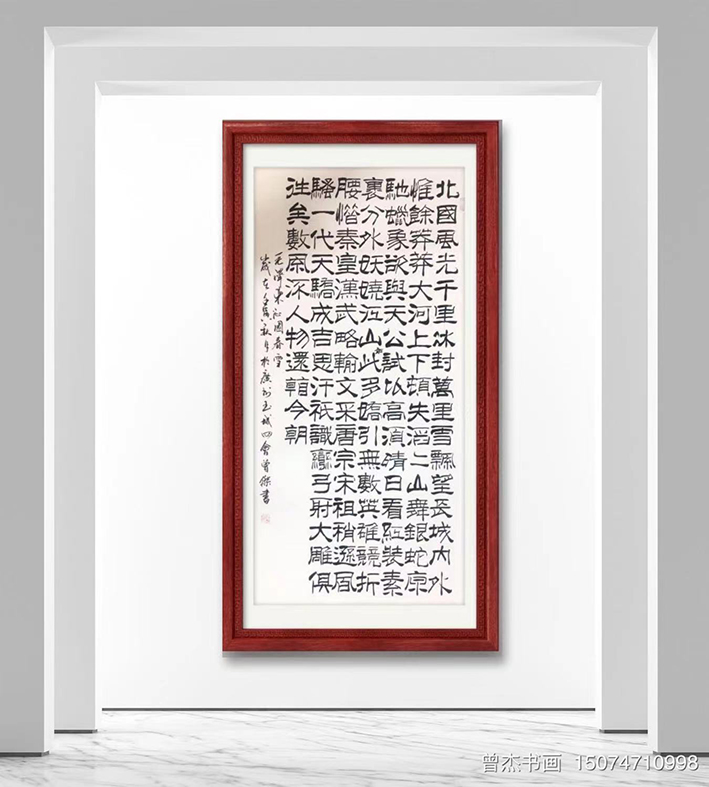 北國風光千里冰封萬里雪飄望長城內外
惟餘莽莽大河上下頓失滔二山舞銀蛇原
馳蠟象欲與天公試比高須晴日看紅裝素
裹分外妖嬈江山此多嬌引無數英雄競折
腰惜秦皇漢武略輸文采唐宗宋祖稍遜風
騷一代天驕成吉思汗祇識彎弓射大雕俱
往矣數風流人物還看今朝
毛澤東沁園春雪
歲在壬寅秋月於廣州玉城四會曾傑書
曾杰书画 15074710998